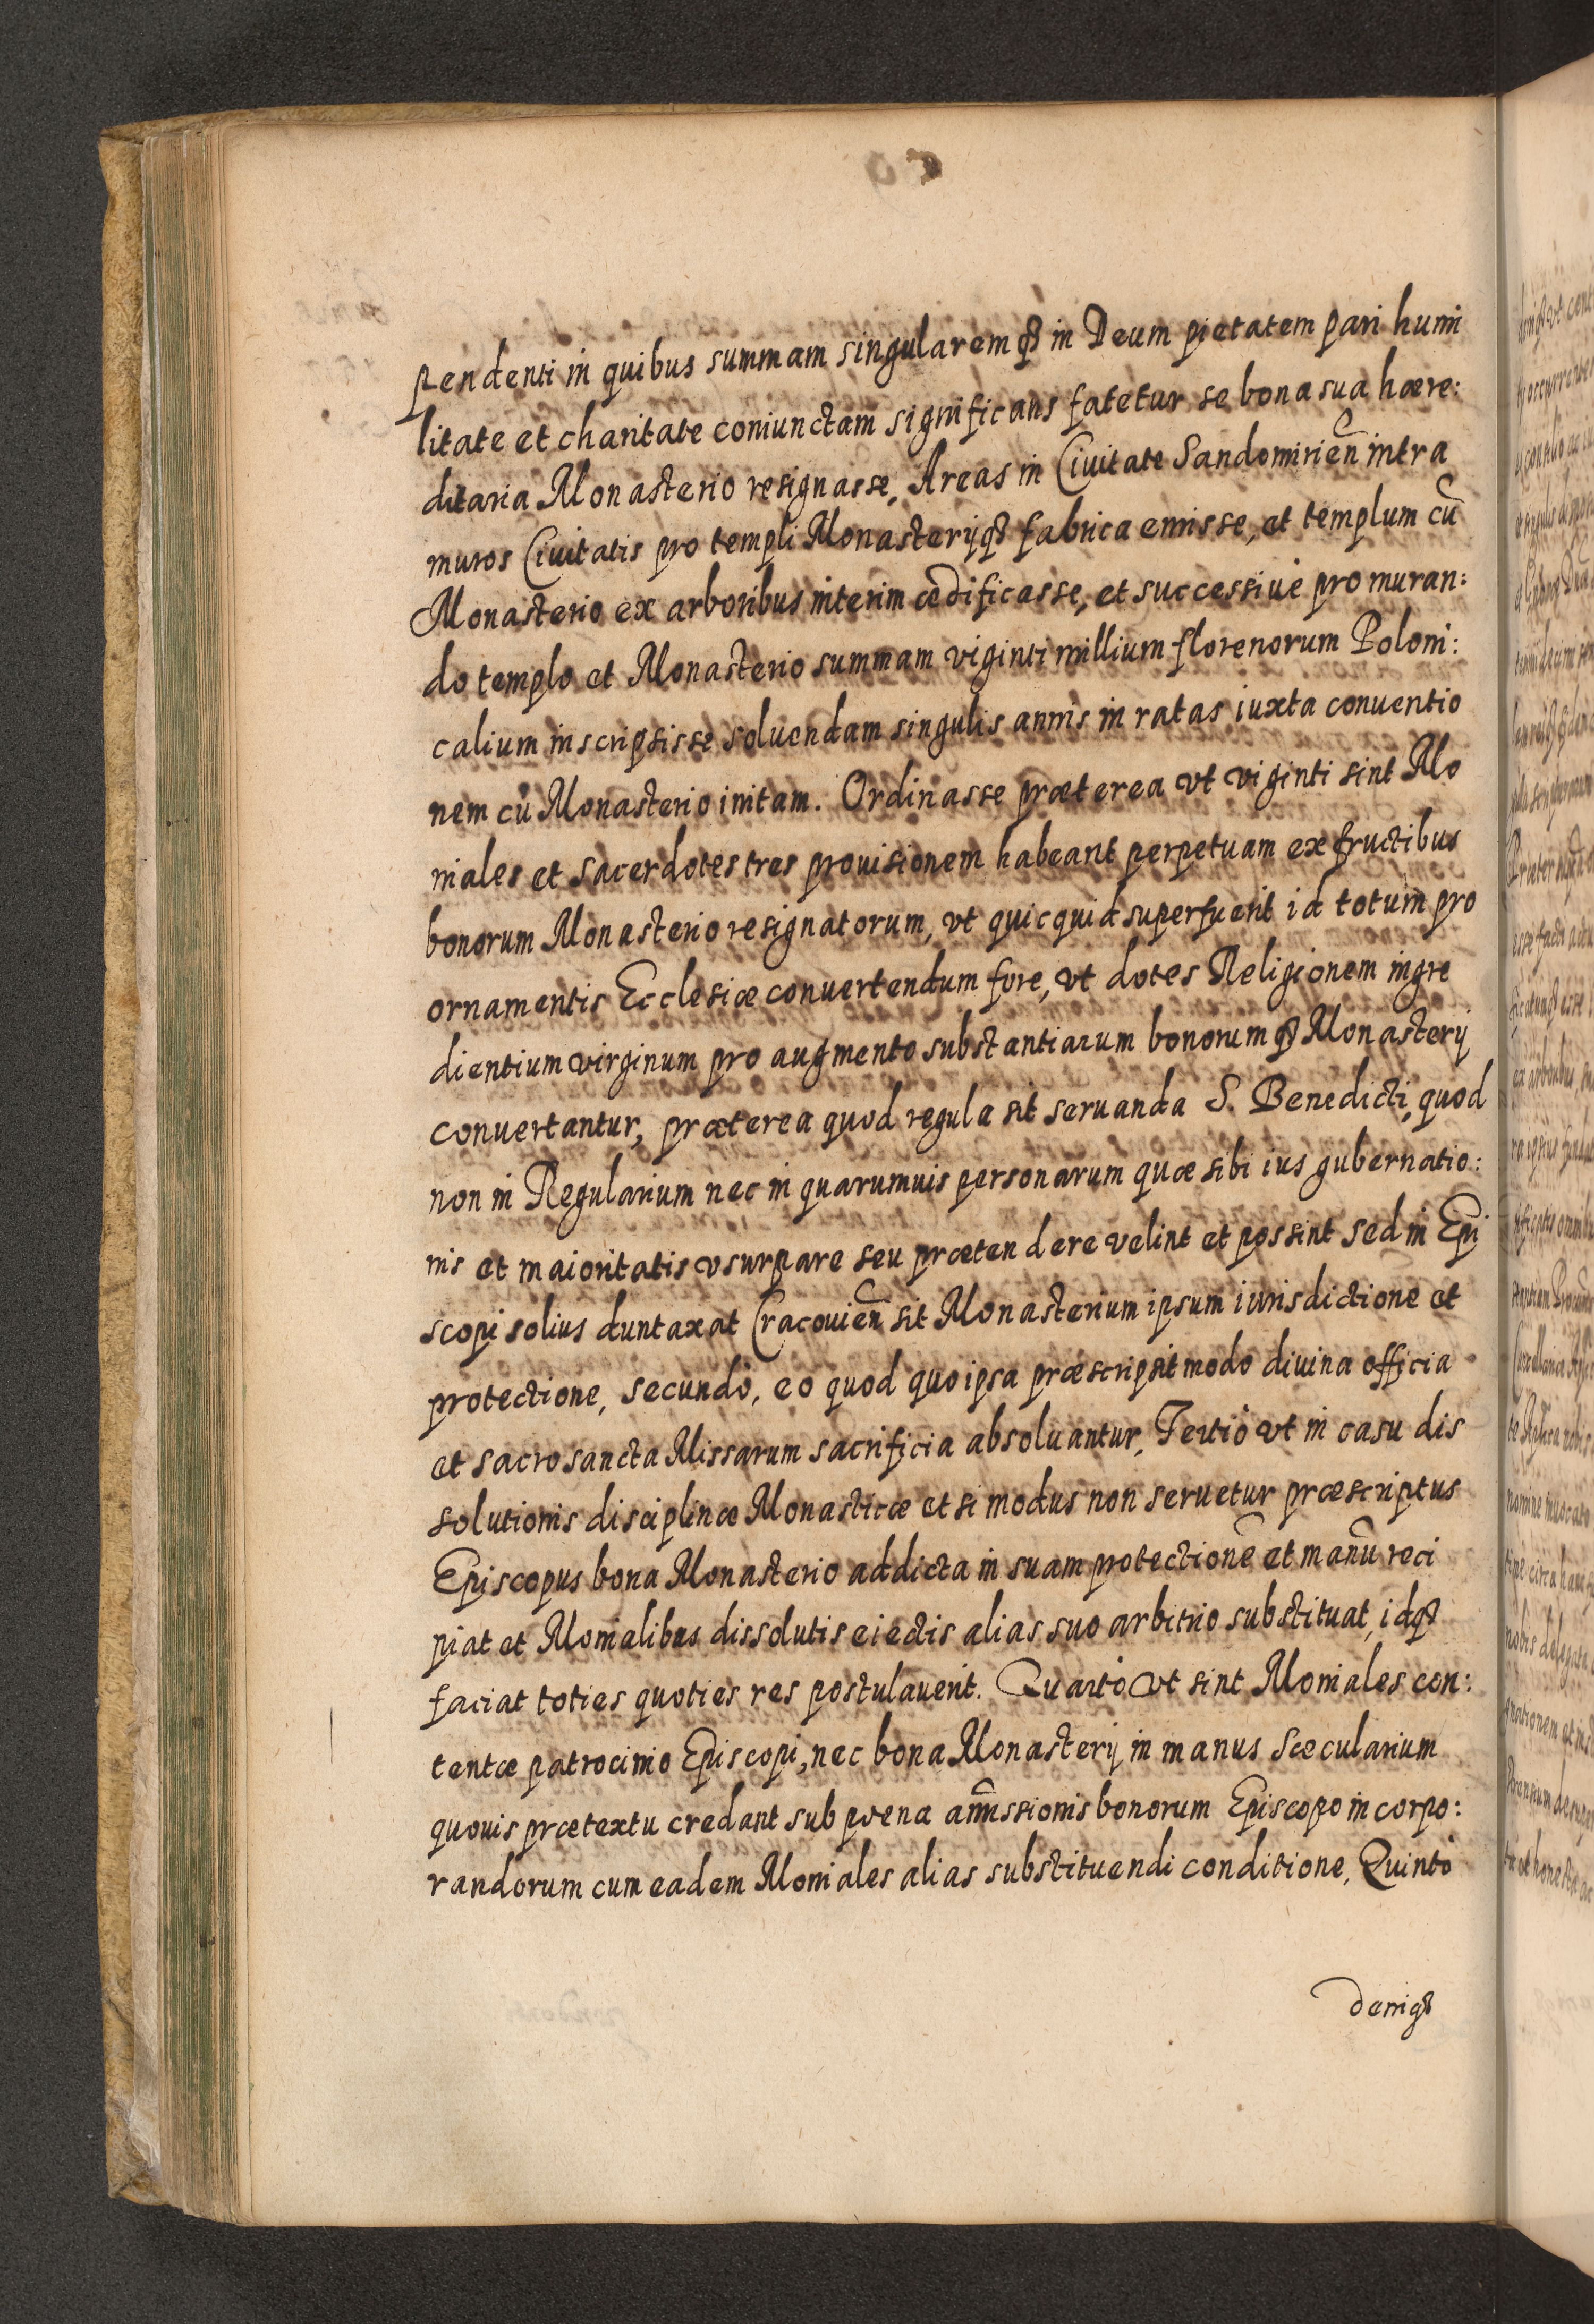 pendenti in quibus summam singularemqꝫ in Deum pietatem pari humi
litate et charitate coniunctam significans fatetur se bona sua hære:
ditaria Monasterio resignasse, Areas in Ciuitate Sandomirien̄ intra
muros Ciuitatis pro templi Monasterijqꝫ fabrica emisse, et templum cū
Monasterio ex arboribus interim ædificasse, et successiuè pro muran:
do templo et Monasterio summam viginti millium florenorum Poloni:
calium inscripsisse soluendam singulis annis in ratas iuxta conuentio
nem cū Monasterio initam. Ordinasse præterea vt viginti sint Mo
niales et sacerdotes tres prouisionem habeant perpetuam ex fructibus
bonorum Monasterio resignatorum, vt quicquid superfuerit id totum pro
ornamentis Ecclesiæ conuertendum fore, vt dotes Religionem ingre
dientium virginum pro augmento substantiarum bonorumqꝫ Monasterij
conuertantur, præterea quod regula sit seruanda S. Benedicti, quod
non in Regularium nec in quarumuis personarum quæ sibi ius gubernatio:
nis et maioritatis vsurpare seu prætendere velint et possint sed in Epi
scopi solius duntaxat Cracouien̄ sit Monasterium ipsum iurisdictione et
protectione, secundò, eo quod quo ipsa præscripsit modo diuina officia
et sacrosancta Missarum sacrificia absoluantur, Tertiò vt in casu dis
solutionis disciplinæ Monasticæ et si modus non seruetur præscriptus
Episcopus bona Monasterio addicta in suam protectionē et manū reci
piat et Monialibus dissolutis eiectis alias suo arbitrio substituat, idqꝫ
faciat toties quoties res postulauerit. Quartò vt sint Moniales con:
tentæ patrocinio Episcopi, nec bona Monasterij in manus Sæcularium
quouis prætextu credant sub poena amissionis bonorum Episcopo incorpo:
randorum cum eadem Moniales alias substituendi conditione, Quintò
deniqꝫ